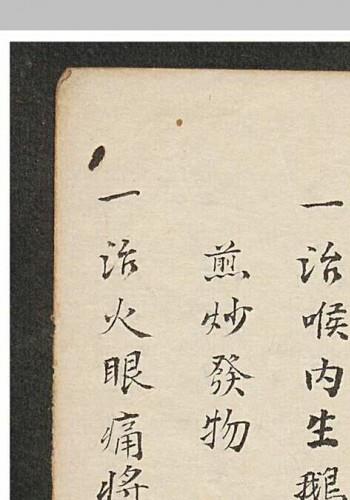 一治喉內生鵝
煎炒發物
一治火眼痛將